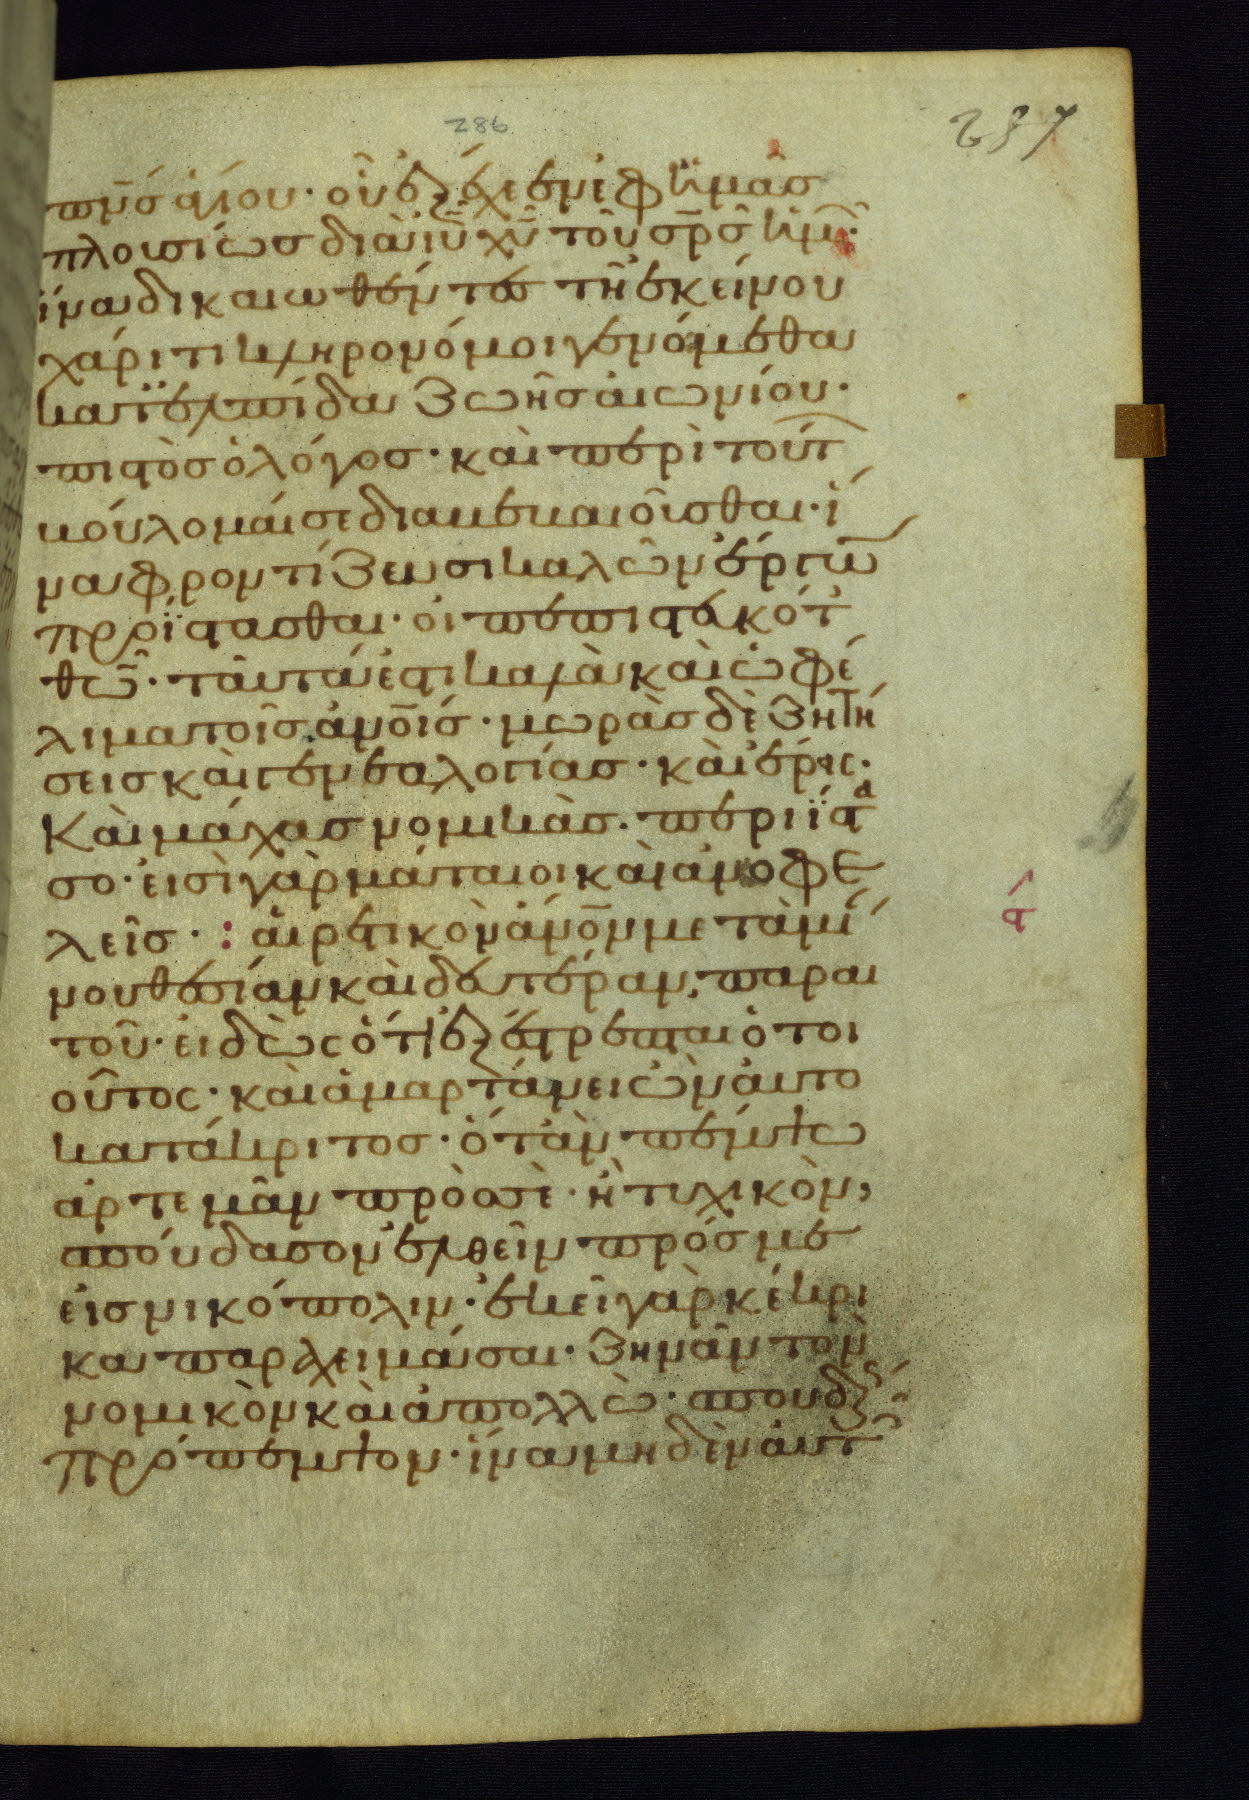 286
287
πν̅ς ἁγίου· οὗ ἐξέχεεν ἐφ ἡμᾶς
πλουσίως διὰ ιυ̅ χυ̅ τοῦ σρ̅ς ἡμ̅·
ἵνα δικαιωθέντες τῆ ἐκείνου
χάριτι κληρονόμοι γενόμεθα
κατ ἐλπίδα ζωῆς αἰωνίου·
πιστὸς ὁ λόγος· καὶ περὶ τούτ
βούλομαί σε διαβεβαιοῦσθαι· ἵ
να φροντίζωσι καλῶν ἔργω̅
προΐστασθαι· οἱ πεπιστευκότ
θῶ̅· ταῦτά ἐστι καλὰ καὶ ὠφέ
λιμα τοῖς ἀνοῖς· μωρὰς δὲ ζητή
σεις καὶ γενεαλογίας· καὶ ἔρεις·
Καὶ μάχας νομικὰς· περιΐστα
σο· εἰσὶ γὰρ μάταιοι καὶ ἀνοφε
λεῖς· : αἱρετικὸν ἄνο̅ν μετὰ μί
νουθεσίαν καὶ δευτέραν, παραι
τοῦ· εἰδὼς ὅτι ἐξέστραπται ὁ τοι
οῦτος· καὶ ἁμαρτάνει ὢν αὐτο
κατάκριτος· ὅταν πέμψω
ἀρτεμᾶν πρὸς σὲ· ἢ τυχικὸν,
σπούδασον ἐλθεῖν πρός με
εἰς νικόπολιν· ἐκεῖ γὰρ κέκρι
και παραχειμάσαι· ζηνᾶν τὸν
νομικὸν καὶ ἀπολλὼ· σπουδς
πρόπεμψον· ἵνα μηδὲν αὐτ